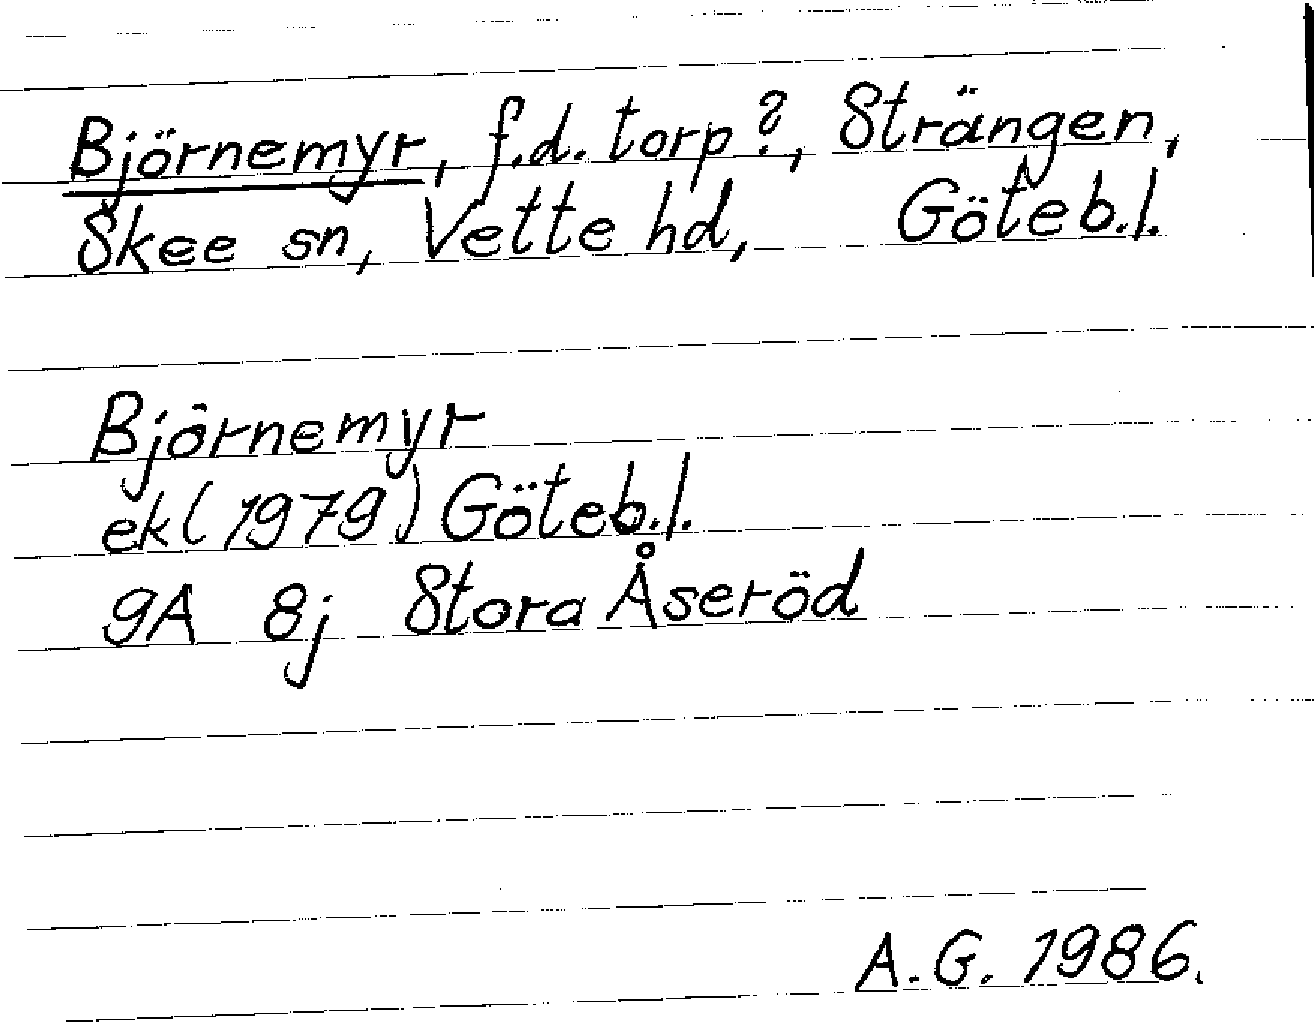 Björnemyr, f.d. torp?, Strängen,
Skee sn, Vette hd, Göteb.l.
Björnemyr
ek (1979) Göteb.l.
9A 8j Stora Åseröd
A.G. 1986.